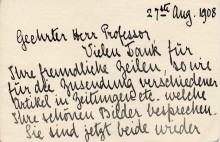 27ste Aug. 1908
Geehrter Herr Professor,
Vielen Dank für
Ihre freundliche Zeilen, so wie
für die Zusendung verschiedener
Artikel in Zeitungen etc. welche
Ihre schönen Bilder besprechen.
Sie sind jetzt beide wieder